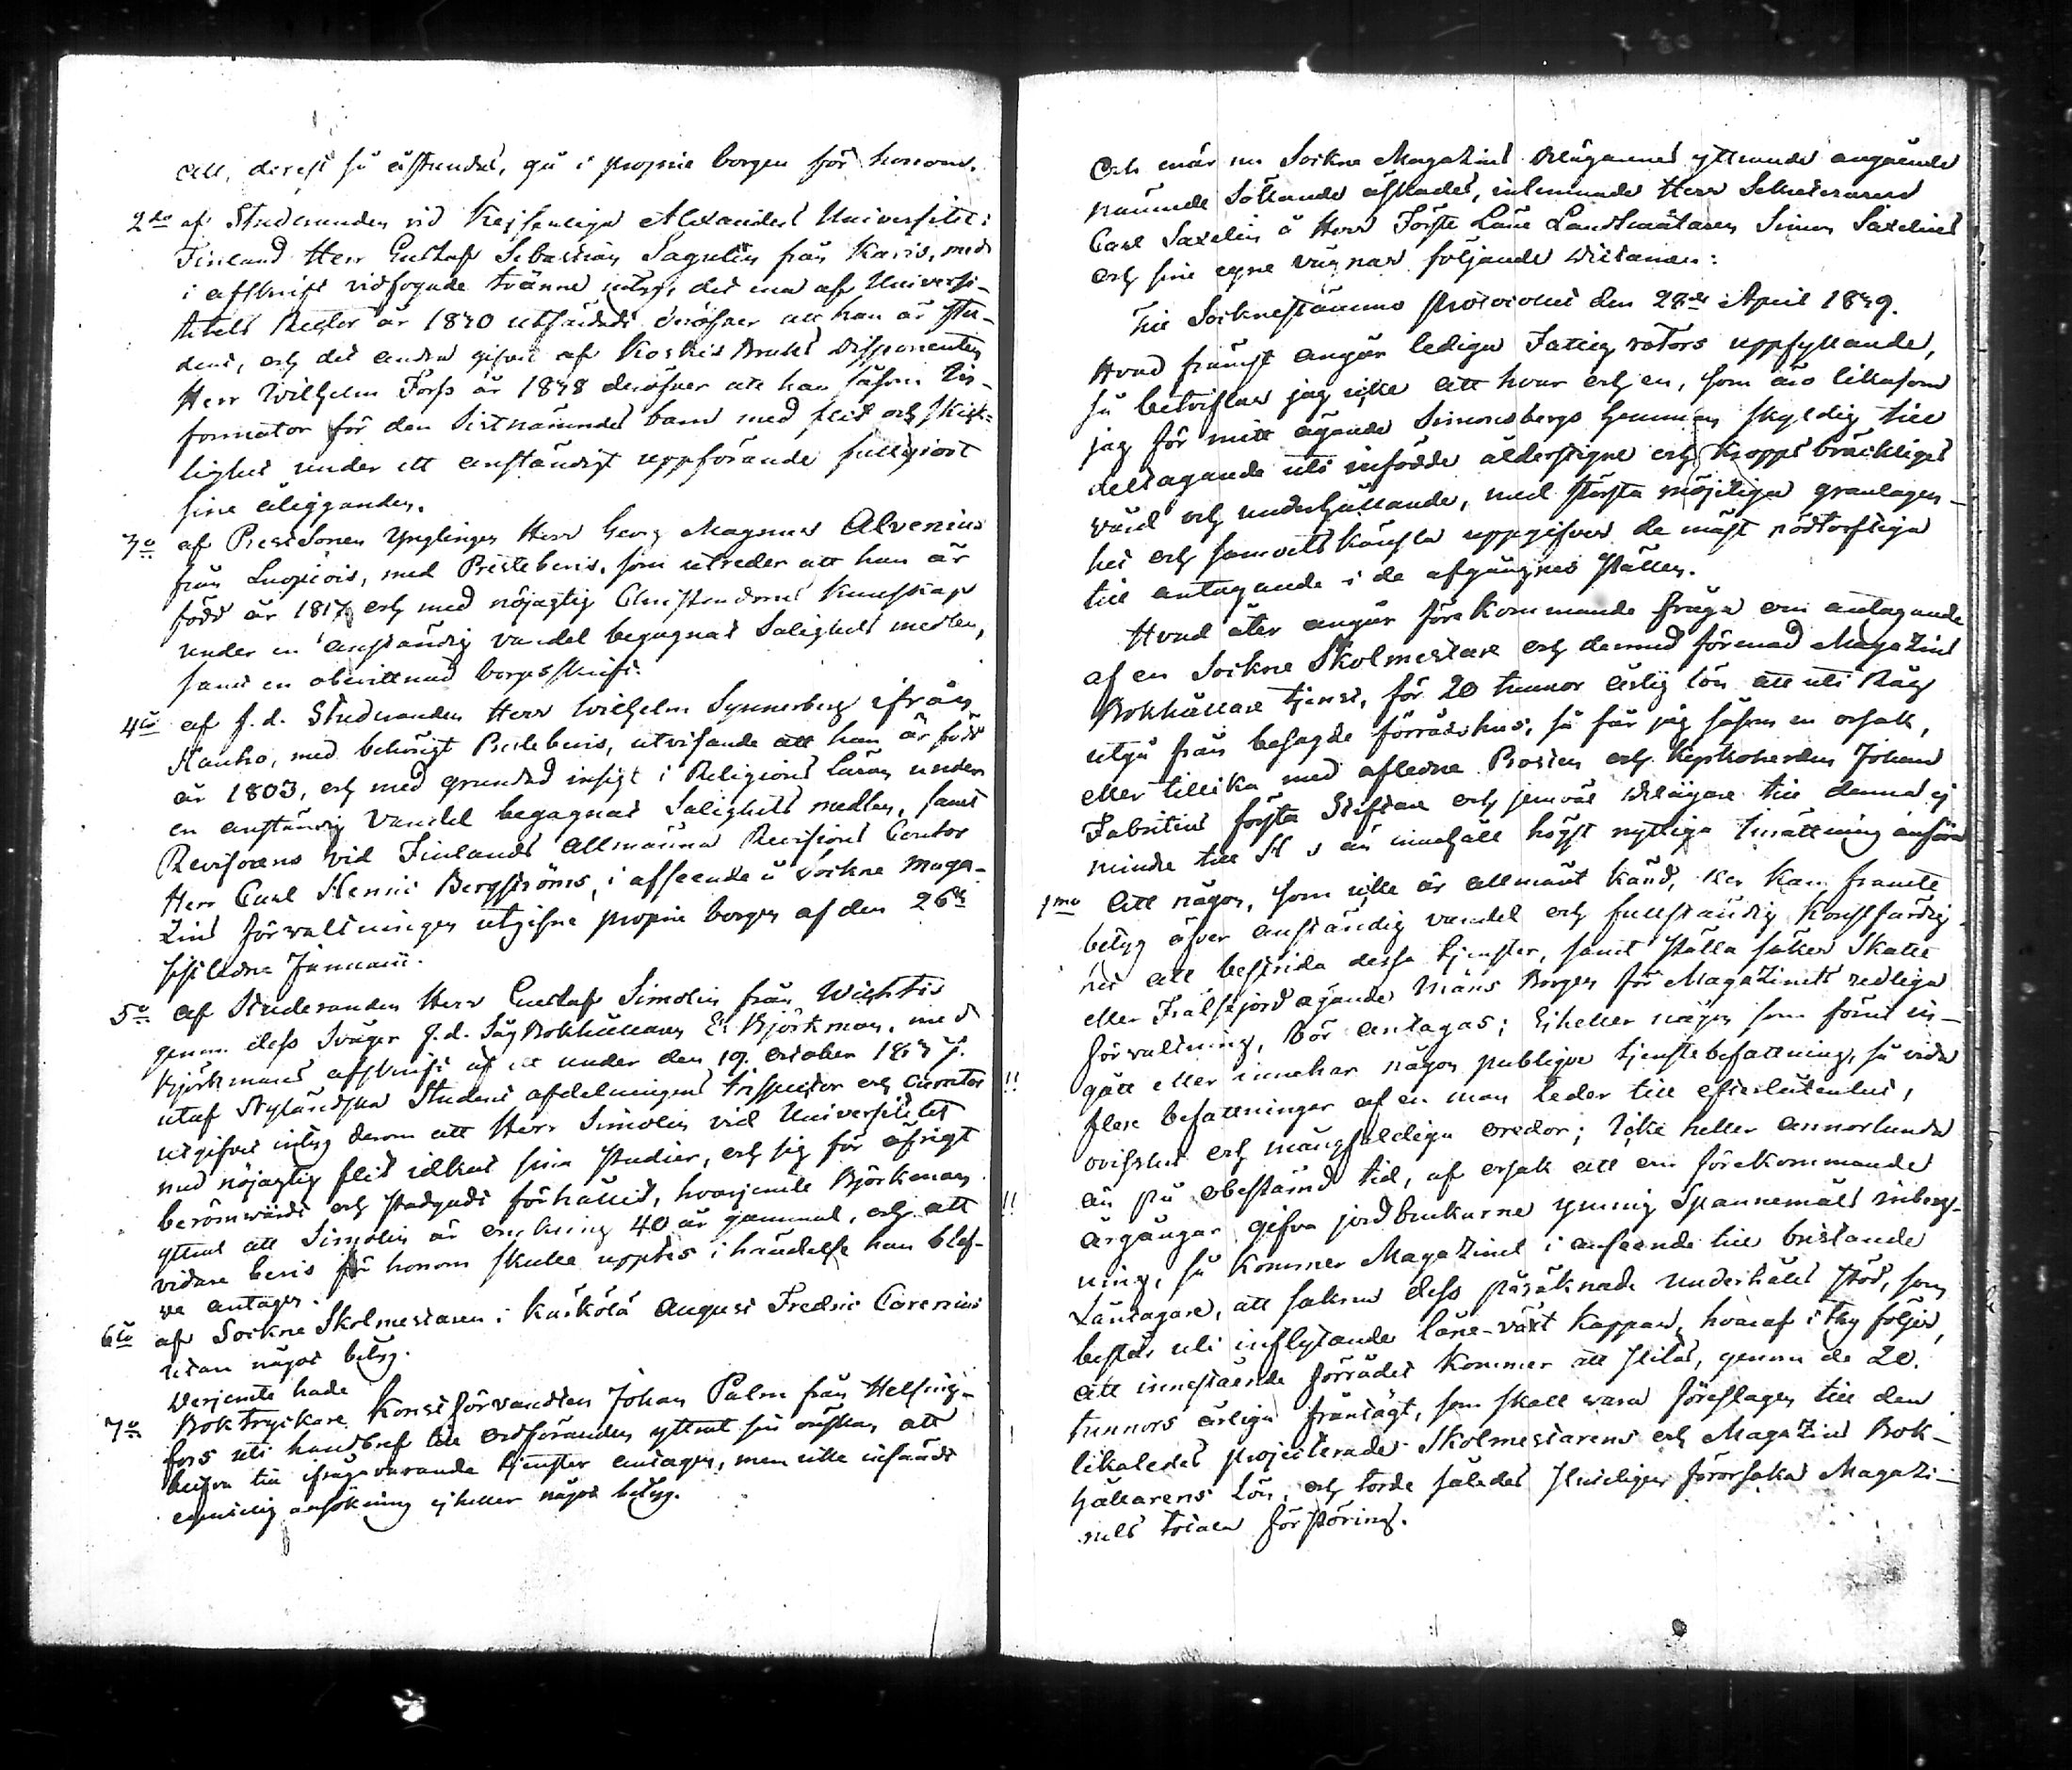 att, derest så åstundas, gå i proprie borgen för honom.
2do af Studeranden vid Kejserliga Alexanders Universitet i
Finland Herr Gustaf Sebastian Sagulin från Karis, med
i afskrift vidfogade tvänne intyg, det ena af Universi-
tetets Rector år 1840 utfärdadt deröfver att han är Stu-
dent, och det andra gifvet af Koskis Bruks Disponenten
Herr Wilhelm Forss år 1848 deröfver att han såsom In-
formator för den sistnämndes barn med flit och skick-
lighet under ett anständigt uppförande fullgjort
sine åligganden.
3o af Ynglingen Herr Georg Magnus Alvenius
från Luopiois, med Prestebevis, som utreder att han är
född år 1817 och med nöjagtig Christendoms kunskap
under en anständig vandel begagnat Salighets medlen,
samt en obevittnad borgesskrift.
4to af f.d. Studeranden Herr Wilhelm Synnerberg ifrån
Hauho, med behörigt Prestebevis, utvisande att han är född
år 1803, och med grundad insigt i Religions Läran under
en anständig Vandel begagnat Salighets medlen, samt
Revisorens vid Finlands Allmänna Revisions Contor
Herr Carl Henric Bergströms, i afseende å Sockne Maga-
zins förvaltningen utgifne proprie borgen af den 26te
sistledne Januarii.
5o af Studeranden Herr Gustaf Simolin från Wichtis
genom dess Svåger f.d. Såg Bokhållaren E. Björkman, med
Björkmans afskrift af ett under den 19. October 1847.
utaf Nyländska Student afdelningens Inspector och Curator
utgifvet intyg derom att Herr Simolin vid Universitetet
med nöjagtig flit idkat sina studier, och sig för öfrigt
berömvärdt och stadgadt förhållit, hvarjemte Björkman
yttrat att Simolin är omkring 40 år gammal, och att
vidare bevis för honom skulle uppvisas i händelse han blef-
ve antagen.
6to af Sockne Skolmestaren i Kärkölä August Fredric Corenius
utan något betyg.
Derjemte hade
7o Boktryckare Konst förvandten Johan Palm från Helsing-
fors uti handbref till Ordföranden yttrat sin önskan att
blifva till ifrågavarande tjenster antagen, men icke insändt
egentlig ansökning ej heller något betyg.
Och när nu Sockne Magazins Delägarnes yttrande angående
nämnde Sökande äskades, inlemnade Herr
Carl Saxelin å Herr Förste Läne Landtmätaren Simon Saxelins
och sine egne vägnar följande Dictamen:
Till Sockneståmmo Protocollet den 28de April 1849.
Hvad främst angår lediga Fattig rotors uppfyllande,
så betviflar jag icke att hvar och en, som äro likasom
jag för mitt ägande Simonsbergs Hemman skyldig till
deltagande uti infödde ålderstigne och Kropps bräckliges
vård och underhållande, med största möjeliga granlagen-
het och samvets känsla uppgifver de mäst nödtorftiga
till antagande i de afgångnes ställen.
Hvad åter angår förekommande fråga om antagande
af en Sockne Skolmestare och dermed förenad Magazins
Bokhållare tjenst, för 20 tunnor årlig lön att uti Råg
utgå från besagde förrådshus, så får jag såsom en orsak,
eller tillika med afledne Prosten och Kyrkoherden Johan
Fabritius första Stiftare och jemväl Delägare till denna ej
mindre till än innehåll högst nyttiga Inrättning anföra
1mo Att någon, som icke är allmänt känd, eller kan framte
betyg öfver anständig vandel och fullständig konstfärdig-
het att bestrida dessa tjenster, samt ställa säker Skatte
eller Frälsejord ägande mäns Borgen för Magazinets redliga
förvaltning, bör antagas; Ej heller någon som förut in-
!! gått eller innehar någon publique tjenstebefattning, så vida
flere befattningar af en man leder till efterlåtenhet,
ovisshet och mångfaldiga oredor; Icke heller annorlunda
än på obestämd tid, af orsak att om förekommande
!! årgångar gifva jordbrukarne ymnig Spannemåls inberg-
ning, så kommer Magazinet i anseende till bristande
Låntagare, att sakna dess påräknade underhålls stöd, som
består uti inflytande låne-växt kappar, hvaraf i thy följer,
att innestående förrådet kommer att slitas, genom de 20.
tunnors årliga frånsägt, som skall vara föreslagen till den
likaledes projecterade Skolmestarens och Magazins Bok-
hållarens Lön, och torde således slutligen förorsaka Magazi-
nets totala förstöring.